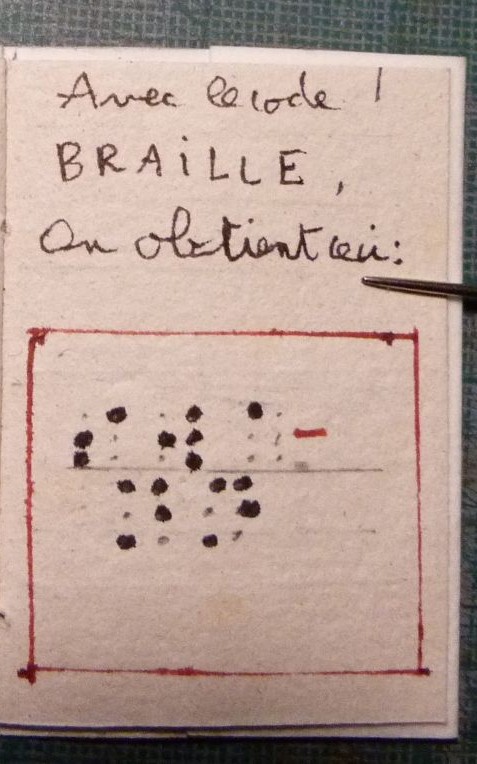 Avec le code !
BRAiLLE,
On obtient ceci:
⠎⠺⠁-
⠝⠝